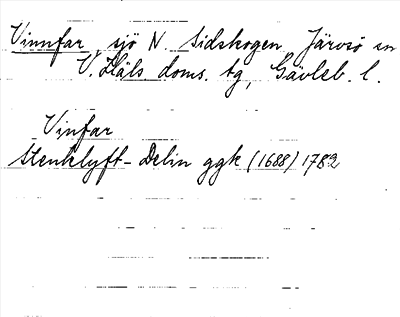 Vinnfar, sjö N. Sidskogen, Järvsö sn
V. Häls doms. tg, Gävleb. l.
Vinfar
Stenklyft - Delin ggk (1688) 1782